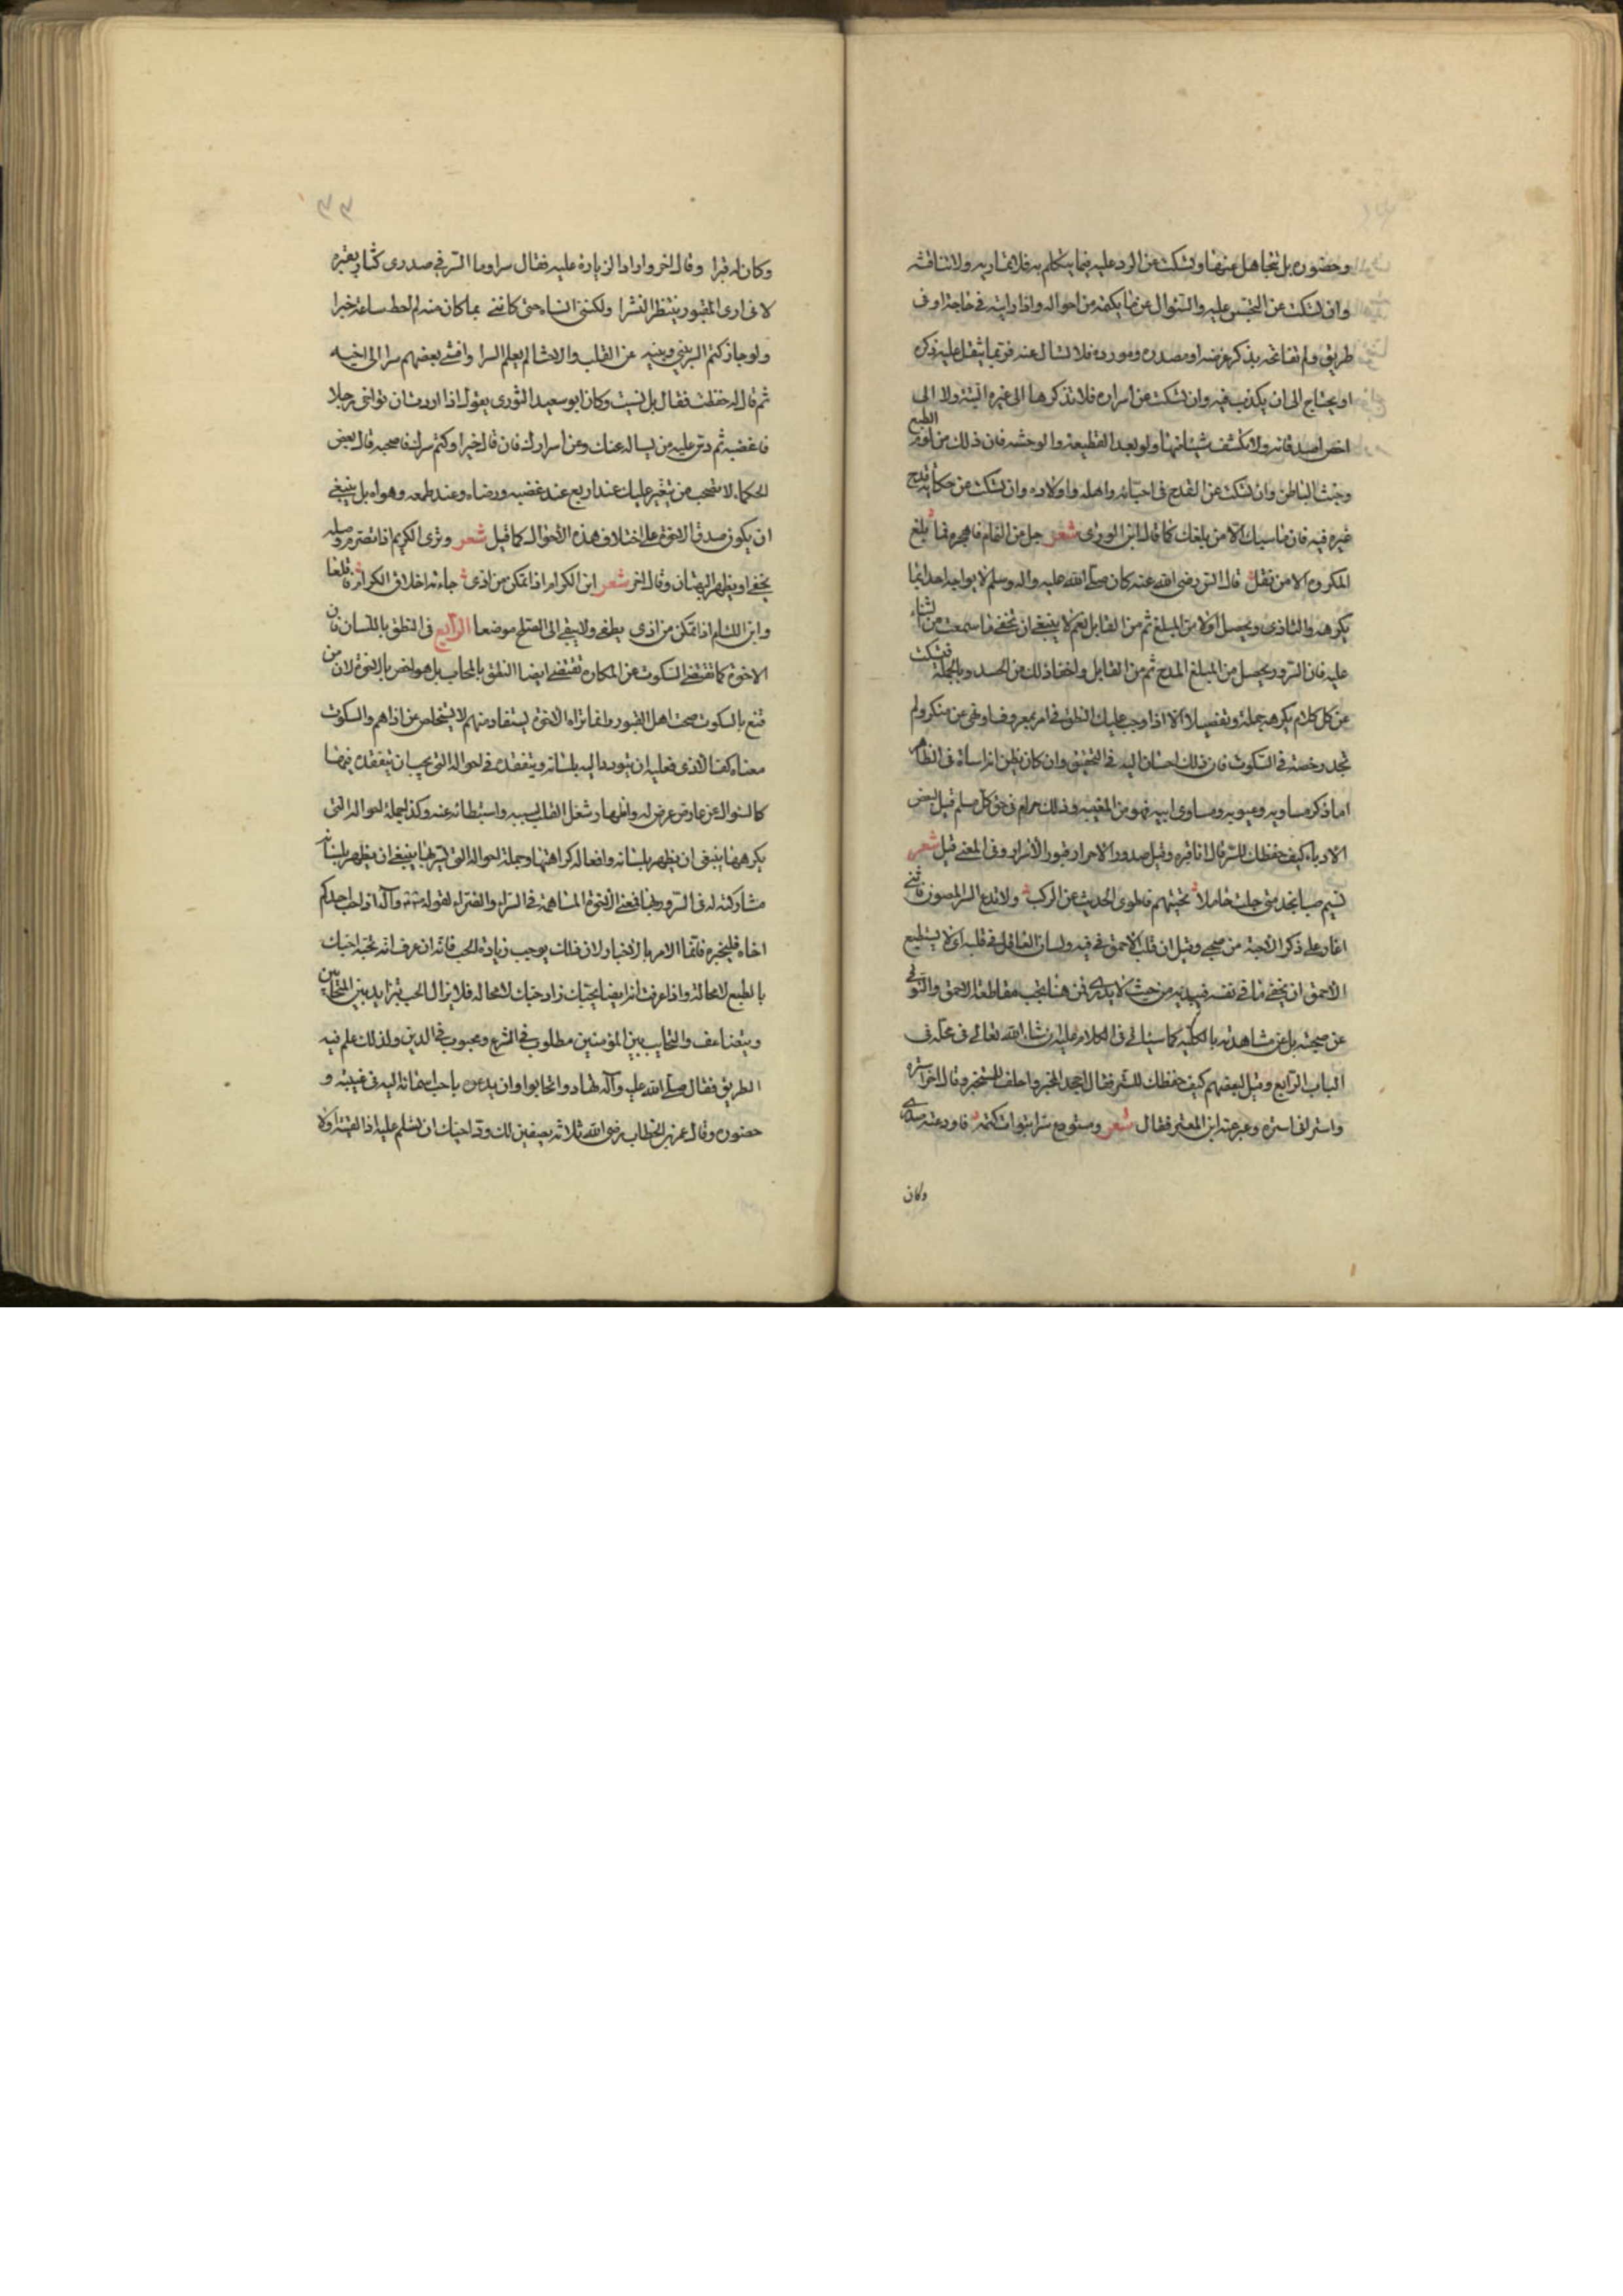 وحضوره بل تتجاهل عنها وتسكت عن الرد عليه فيما يتكلم به فلا تماريه ولا تناقشه
وان تسكت عن التجسس عليه والسؤال عن ما يكتمه من احواله واذا رايته في حاجة او في
طريق ولم تفاتحه بذكر غرضه او مصدره ومورده فلا تسال عنه فربما يثقل عليه ذكره
او يحتاج الى ان يكذب فيه وان تسكت عن اسراره فلا تذكرها الى غيره البتة ولا الى
اخص اصدقائه ولا تكشف شيئا منها ولو بعد القطيعة والوحشة فان ذلك من لؤم الطبع
وخبث الباطن وان تسكت عن القدح في احبائه واهله واولاده وان تسكت من حكاية قدح
غيره فيه فان ما سبك الا من بلغك كما قاله ابن الوردي شعر جل من النمام فاهجره فما بلغ
المكروه الا من نقل قال انس رضي الله عنه كان صلى الله عليه واله وسلم لا يواجه احدا بما
يكرهه والتاذي ويحصل اولا من المبلغ ثم من القايل نعم لا ينبغي ان تخفي ما سمعت من الثناء
عليه فان السرور يحصل من المبلغ المدح ثم من القايل واخفاء ذلك من الحسد وبالجملة فتسكت
عن كل كلام يكرهه جملة وتفصيلا الا اذا وجب عليك النطق في امر بمعروف او نهي عن منكر ولم
تجد رخصة في السكوت فان ذلك احسان اليه في التحقيق وان كان يظن انه اساءة في الظاهر
اما ذكر مساويه وعيوبه ومساوي ابيه فهو من الغيبة وذلك حرام في حق كل مسلم قيل لبعض
الادباء كيف حفظك للسر قال انا قبره وقيل صدور الاحرار قبور الاسرار وفي المعنى قيل شعر
نسيم صبا نجد متى جئت حاملا تحيتهم فاطوي الحديث عن الركب ولا تدع السر المصون فانني
اغار على ذكر الاحبة من صحبي وقيل ان قلب الاحمق في فيه ولسان العاقل في قلبه اي لا يستطيع
الاحمق ان يخفي ما في نفسه فيبديه من حيث لا يدري فمن هنا يجب مقاطعة الاحمق والتوقي
عن صحبته بل عن مشاهدته بالكلية كما سياتي في الكلام عليه ان شاء الله تعالى في محله في
الباب الرابع وقيل لبعضهم كيف حفظك للسر فقال اجحد المخبر واحلف للمستخبر وقال اخر استره
واستر اني استره وعبر عنه ابن المعتز فقال شعر ومستودعي سرا تبوات كتمه فاودعته صدري
وكان
٣٣
وكان له قبرا وقال اخر واراد الزيادة عليه فقال سرا وما السر في صدري كثاو بقبره
لاني ارى المقبور ينتظر النشرا ولكنني انساه حتى كانني بما كان منه لم احط ساعة خبرا
ولو جاز كتم السر بيني وبينه عن القلب والاحشا لم يعلم السرا وافشى بعضهم سرا الى اخيه
ثم قال له حفظت فقال بل نسيت وكان ابو سعيد الثوري يقول اذا اردت ان تواخي رجلا
فاغضبه ثم دس عليه من يساله عنك وعن اسرارك فان قال خيرا وكتم سرك فاصحبه قال بعض
الحكماء لا تصحب من يتغير عليك عند اربع عند غضبه ورضاه وعند طمعه وهواه بل ينبغي
ان يكون صدق الاخوة على اختلاف هذه الاحوال كما قيل شعر وترى الكريم اذا تصرم وصله
يخفي او يظهر البهتان وقال اخر شعر ابن الكرام اذا تمكن من اذى جاءته اخلاق الكرام فاقلعا
وابن اللئام اذا تمكن من اذى يطغى ولا يبقي الى الصلح موضعا الرابع في النطق باللسان فان
الاخوة كما تقتضي السكوت عن المكاره تقتضي ايضا النطق بالمحاب بل هو اخص بالاخوة لان من
قنع بالسكوت صحب اهل القبور وانما تراد الاخوة ليستفاد منهم لا ليتخلص عن اذاهم والسكوت
معناه كف الاذى فعليه ان يتودد اليه بلسانه ويتفقده في احواله التي يجب ان يتفقده فيها
كالسؤال عن عارض عرض له واظهار شغل القلب بسببه واستبطائه عنه وكذا جملة احواله التي
يكرهها ينبغي ان يظهر بلسانه وافعاله كراهتها وجملة احواله التي يسر بها ينبغي ان يظهر بلسانه
مشاركته له في السرور بها فمعنى الاخوة المساهمة في السراء والضراء لقوله وآله اذا احب احدكم
اخاه فليخبره فانما الامر بالاخبار لان ذلك يوجب زيادة الحب فانه ان عرف انه تحبه احبك
بالطبع لا محالة واذا عرفت انه ايضا يحبك زاد حبك لا محالة فلا يزال الحب يتزايد بين المتحابين
ويتضاعف والتحابب بين المؤمنين مطلوب في الشرع ومحبوب في الدين ولذلك علم فيه
الطريق فقال صلى الله عليه وآله تهادوا تحابوا وان يدعى باحب اسمائه اليه في غيبته و
حضوره وقال عمر بن الخطاب رضي الله ثلاثة يصفين لك ود اخيك ان تسلم عليه اذا لقيته اولا